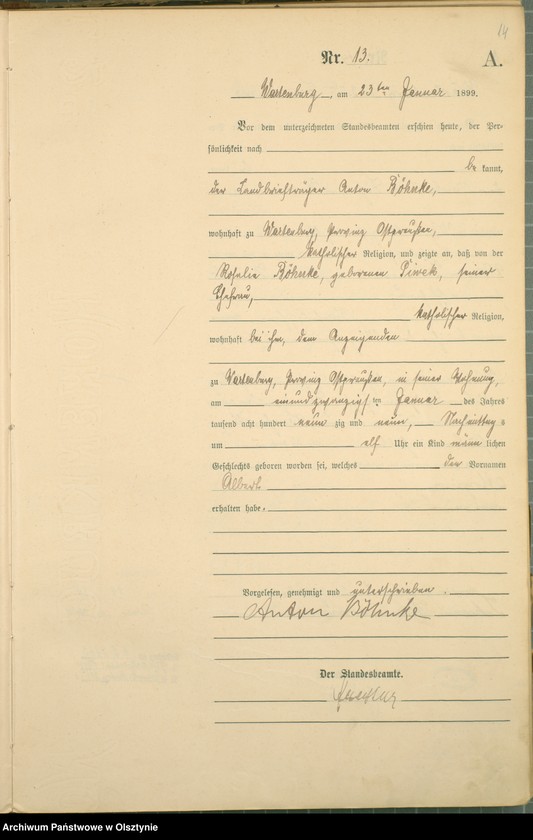 14
Nr. 13. A.
Wartenburg, am 23ten Januar 1899.
Vor dem unterzeichneten Standesbeamten erschien heute, der Per-
sönlichkeit nach
be kannt,
der Landbriefträger Anton Böhnke,
wohnhaft zu Wartenburg, Provinz Ostpreußen,
katholischer Religion, und zeigte an, daß von der
Rosalie Böhnke, geborenen Piwek, seiner
Ehefrau,
katholischer Religion,
wohnhaft bei ihm, dem Anzeigenden
zu Wartenburg, Provinz Ostpreußen, in seiner Wohnung,
am einundzwanzigsten Januar des Jahres
tausend acht hundert neun zig und neun, Nachmittags
um elf Uhr ein Kind männ lichen
Geschlechts geboren worden sei, welches den Vornamen
Albert
erhalten habe.
Vorgelesen, genehmigt und unterschrieben.
Anton Böhnke
Der Standesbeamte.
Archiwum Państwowe w Olsztynie